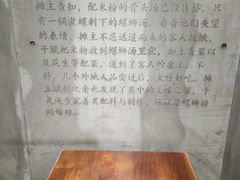 摊主告知，配米粉的骨头汤已经售馨，
只有一锅煮螺剩下的螺蛳汤，看着他们失望
的表情，摊主不忍远道而来的客人挨饿，
干脆把米粉放到螺蛳汤里煮，加上青菜以
及花生等配菜，送到了客人的桌上。不
料，几个外地人品尝过后，大呼好吃。摊
主欣慰之余也发现了其中的美味之道，于
是逐步完善其配料与制作，这就是螺蛳粉
的雏形。